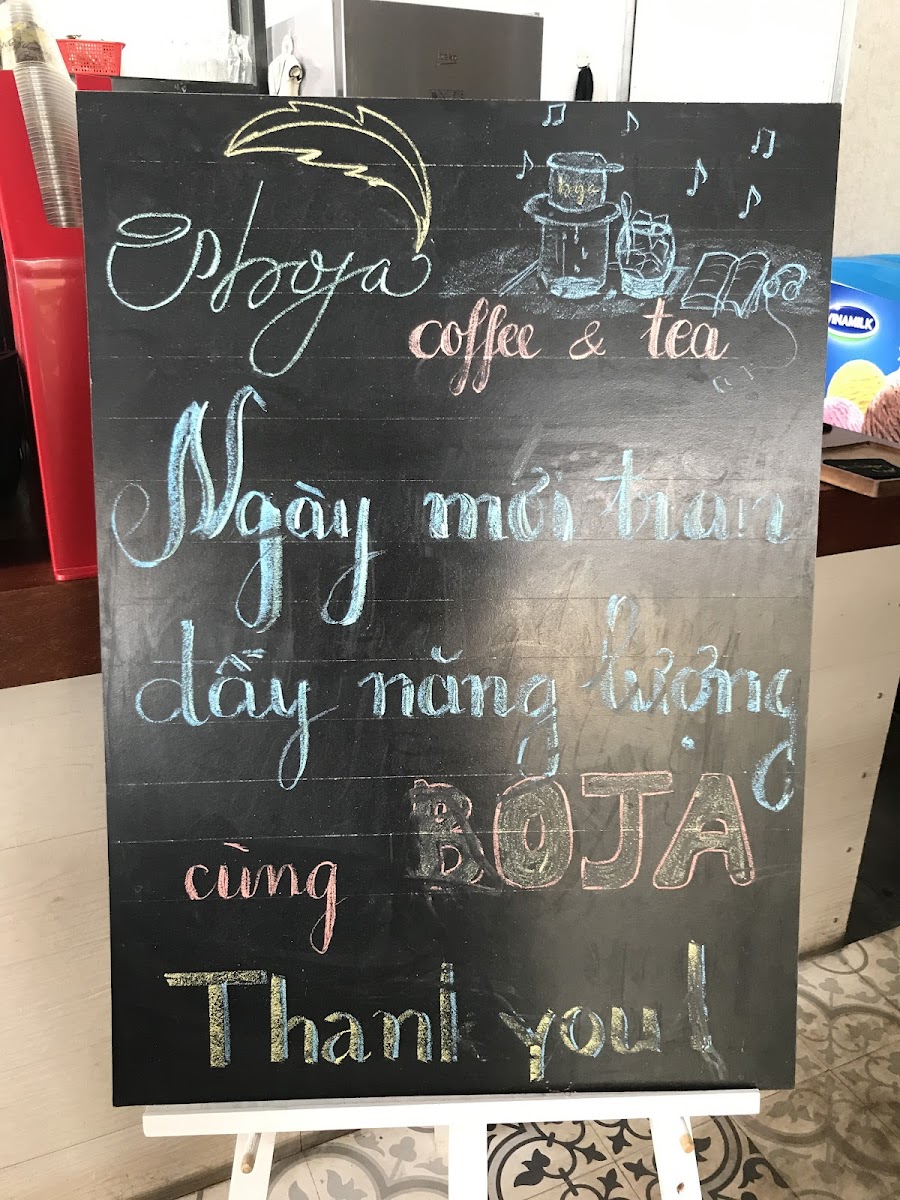 boja
boja
coffee & tea
VINAMILK
Ngày mới tràn
đầy năng lượng
cùng BOJA
Thank you!